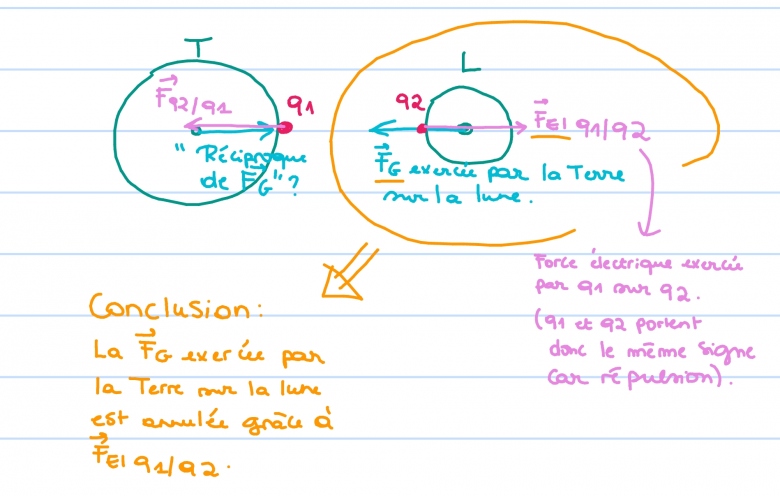 T
L
F q2/q1
q1
q2
F El q1/q2
"Réciproque
de FG"?
FG exercée par la Terre
sur la lune.
Force électrique exercée
par q1 sur q2.
(q1 et q2 portent
donc le même signe
car répulsion).
Conclusion:
La FG exercée par
la Terre sur la lune
est annulée grâce à
F El q1/q2.